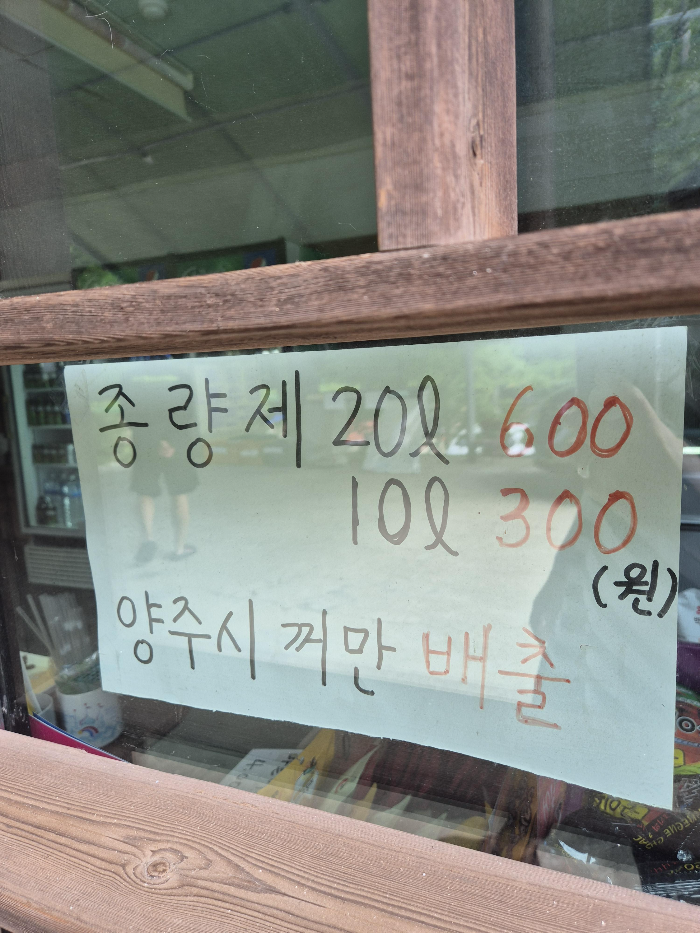 종량제 20l 600
10l 300
(원)
양주시 꺼만 배출